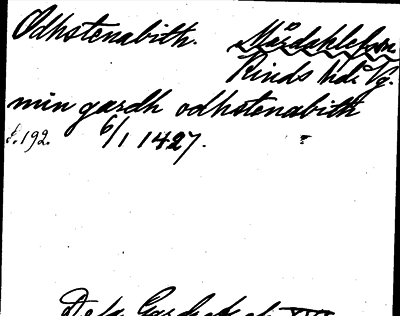 Odhstenabith. Mårdaklefven
Kinds hd. Vg.
min gardh odhstenabith
f. 192. 6/1 1427.